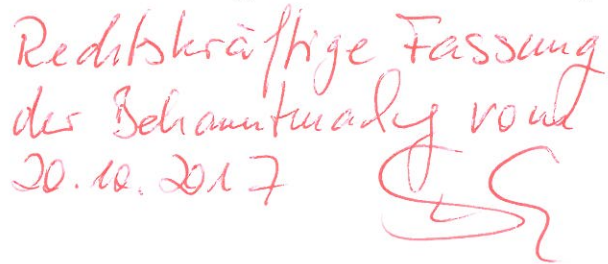 Rechtskräftige Fassung
der Bekanntmachung vom
20.10.2017